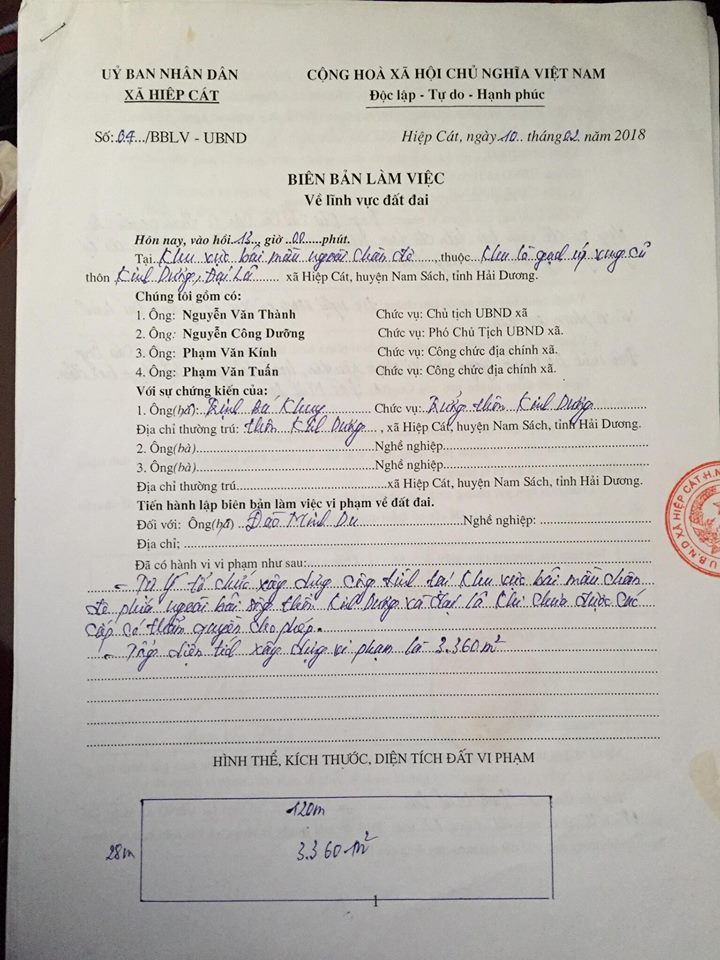 UỶ BAN NHÂN DÂN CỘNG HOÀ XÃ HỘI CHỦ NGHĨA VIỆT NAM
XÃ HIỆP CÁT Độc lập - Tự do - Hạnh phúc
Số: 04.../BBLV - UBND Hiệp Cát, ngày 10.. tháng 02. năm 2018
BIÊN BẢN LÀM VIỆC
Về lĩnh vực đất đai
Hôn nay, vào hồi 13... giờ ..00......phút.
Tại Khu vực bãi mầu ngoài chân đê ......, thuộc... Khu lò gạch cũ
thôn Kinh Dương, Đại Lã ....... xã Hiệp Cát, huyện Nam Sách, tỉnh Hải Dương.
Chúng tôi gồm có:
1. Ông: Nguyễn Văn Thành Chức vụ: Chủ tịch UBND xã
2. Ông: Nguyễn Công Dưỡng Chức vụ: Phó Chủ Tịch UBND xã.
3. Ông: Phạm Văn Kính Chức vụ: Công chức địa chính xã.
4. Ông: Phạm Văn Tuấn Chức vụ: Công chức địa chính xã.
Với sự chứng kiến của:
1. Ông(bà): Đinh Bá Khung Chức vụ: Trưởng thôn Kinh Dương
Địa chỉ thường trú: thôn Kinh Dương , xã Hiệp Cát, huyện Nam Sách, tỉnh Hải Dương.
2. Ông(bà)..........Nghề nghiệp..........
3. Ông(bà)..........Nghề nghiệp..........
Địa chỉ thường trú..........xã Hiệp Cát, huyện Nam Sách, tỉnh Hải Dương.
Tiến hành lập biên bản làm việc vi phạm về đất đai.
Đối với: Ông(bà) Đào Minh Du ..........Nghề nghiệp: ..........
Địa chỉ; ..........
Đã có hành vi vi phạm như sau:..........
- Tự ý tổ chức xây dựng công trình tại khu vực bãi mầu chân
đê phía ngoài bãi sông thôn Kinh Dương và Đại Lã khi chưa được các
cấp có thẩm quyền cho phép.
- Tổng diện tích xây dựng vi phạm là 3.360m²
HÌNH THỂ, KÍCH THƯỚC, DIỆN TÍCH ĐẤT VI PHẠM
120m
28m 3.360m²
1
UBND XÃ HIỆP CÁT-H.N